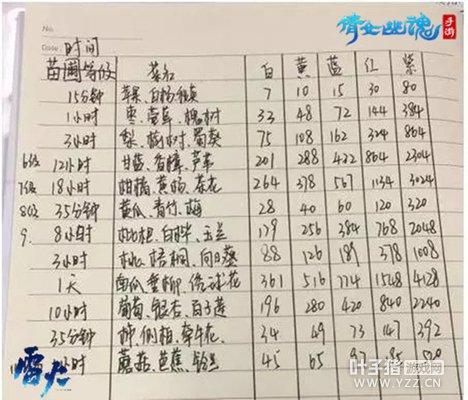 No.
倩女幽魂 手游
Date 时间
苗圃等级 白 黄 蓝 红 紫
15分钟 苹果、白杨、 7 10 15 30 80
1小时 枣、萱草、槐树 33 48 72 144 384
3小时 梨、 树、蜀葵 75 108 162 324 864
6级 12小时 甘蓝、香樟、芦苇 201 288 432 864 2304
7级 18小时 柑橘、黄杨、茶花 264 378 567 1134 3024
8级 35分钟 黄瓜、青竹、梅 28 40 60 120 320
9. 8小时 枇杷、白桦、玉兰 179 256 384 768 2048
3小时 桃、梧桐、向日葵 88 126 189 378 1008
1天 南瓜、垂柳、绣球花 361 516 774 1548 4128
10小时 葡萄、银杏、百子莲 196 280 420 840 2240
35分钟 柿、侧柏、牵牛花、 34 49 73 147 392
小时 蘑菇、芭蕉、铃兰 45 65 520
雷火
叶子猪游戏网
WWW.YZZ.CN